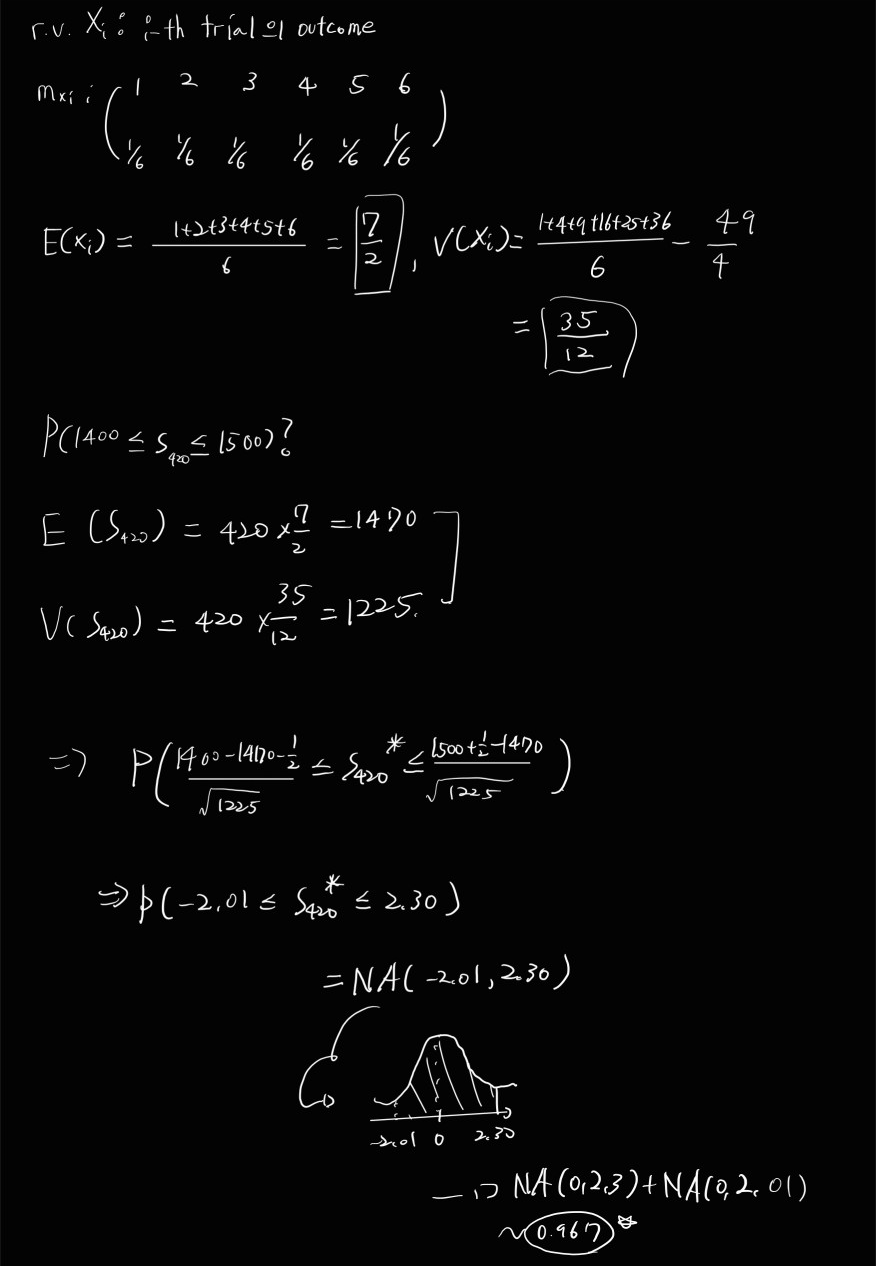 r.v. Xᵢ : i-th trial 의 outcome
m_{Xᵢ} : ( 1 2 3 4 5 6
1/6 1/6 1/6 1/6 1/6 1/6 )
E(Xᵢ) = (1+2+3+4+5+6)/6 = 7/2 , V(Xᵢ) = (1+4+9+16+25+36)/6 - 49/4
= 35/12
P(1400 ≤ S₄₂₀ ≤ 1500)?
E (S₄₂₀) = 420 × 7/2 = 1470
V(S₄₂₀) = 420 × 35/12 = 1225.
⇒ P( (1400-1470-1/2)/√1225 ≤ S₄₂₀* ≤ (1500+1/2-1470)/√1225 )
⇒ P(-2.01 ≤ S₄₂₀* ≤ 2.30)
= NA(-2.01, 2.30)
-2.01 0 2.30
→ NA(0,2.3)+NA(0,2.01)
~ 0.967